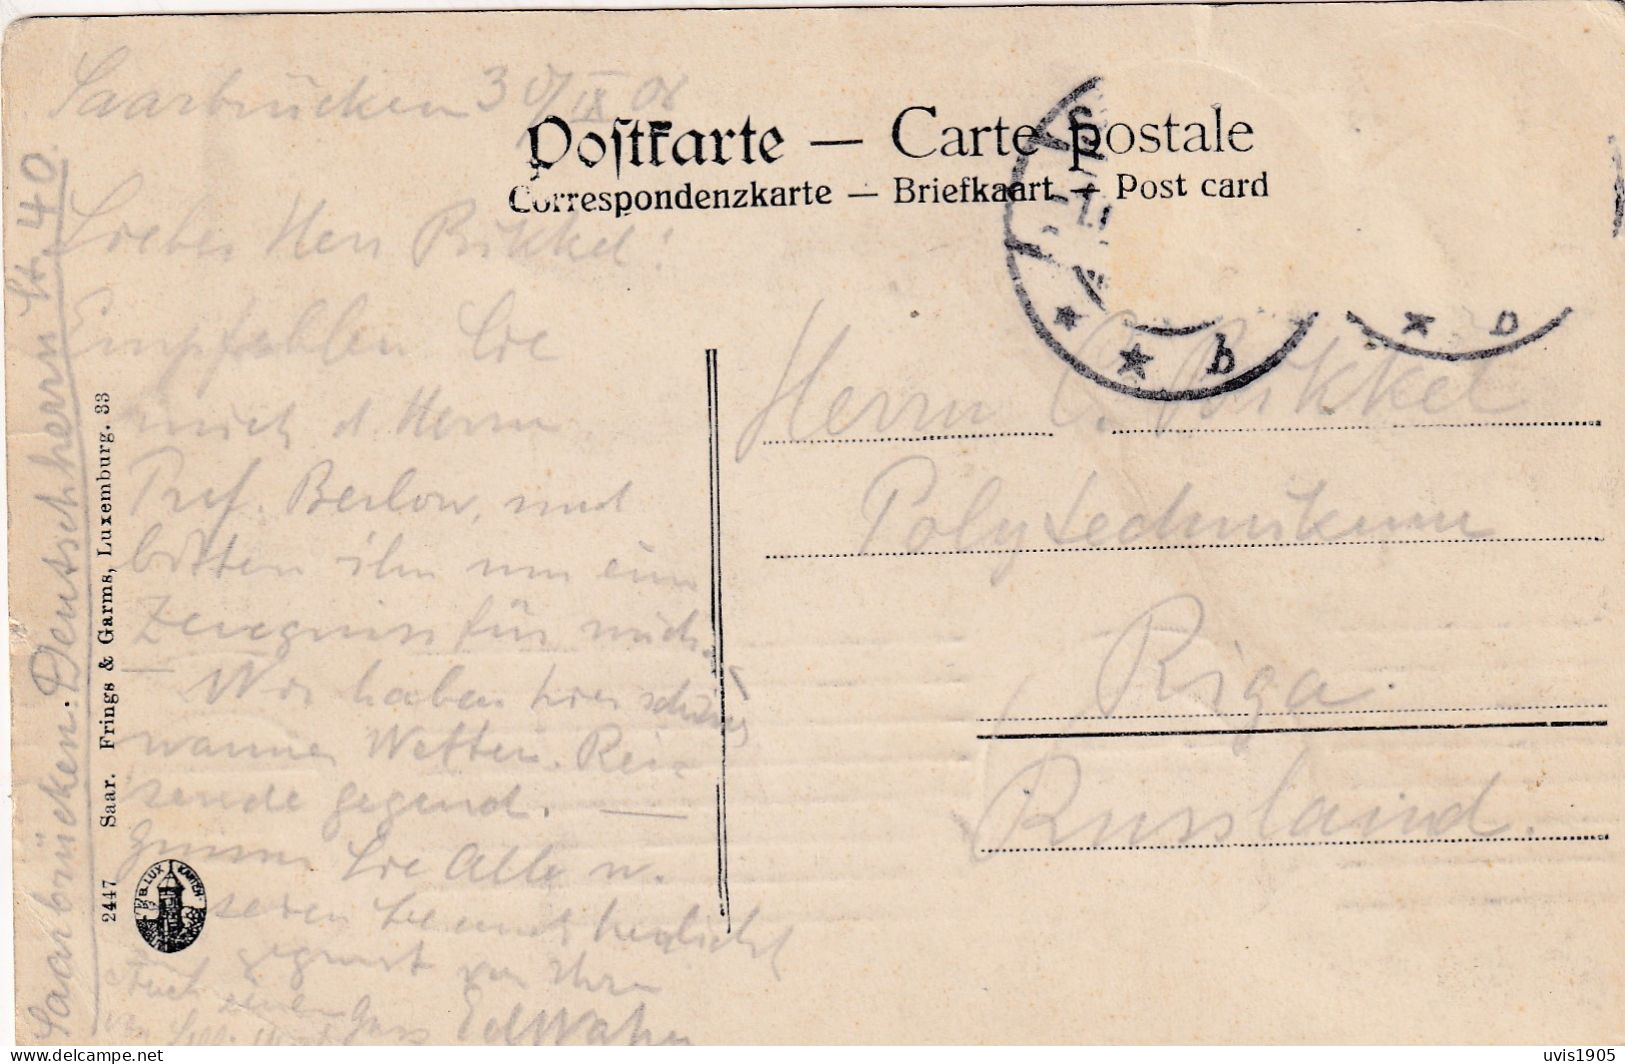 Saarbrücken 30/IX 08
Postkarte — Carte postale
Correspondenzkarte — Briefkaart — Post card
Lieber Herr Bikkel!
Empfehlen Sie
mich d. Herrn
Prof. Berlow, und
bitten ihn um ein
Zeugniss für mich.
Wir haben hier schönes
warmes Wetter. Rei-
zende Gegend. —
Grüssen Sie Alle u.
seien Sie herzlichst
gegrüsst von Ihrem
Auch
Ed Wahr
Saarbrücken. Deutschherrn St. 40.
2447 Saar. Frings & Garms, Luxemburg. 33
B. LUX KARTEN
Herrn C. Bikkel
Polytechnikum
Riga.
Russland.
b
delcampe.net
uvis1905